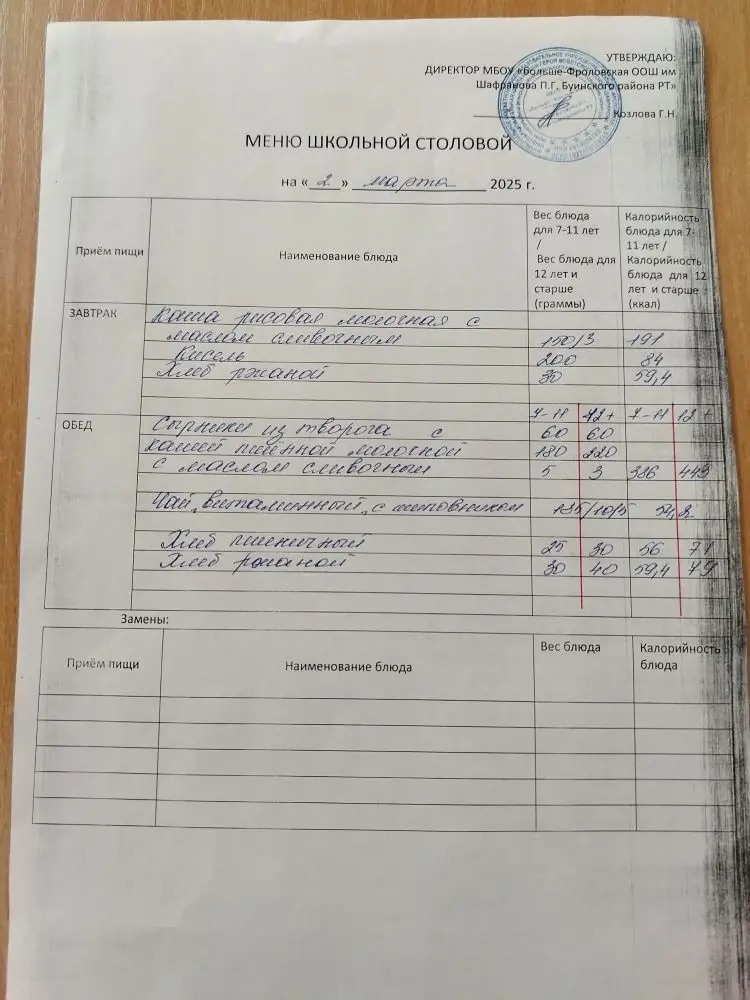 УТВЕРЖДАЮ:
ДИРЕКТОР МБОУ «Больше-Фроловская ООШ им
Шафранова П.Г. Буинского района РТ»
Козлова Г.Н.
МЕНЮ ШКОЛЬНОЙ СТОЛОВОЙ
на « 2 » марта 2025 г.
Приём пищи
Наименование блюда
Вес блюда
для 7-11 лет
/
Вес блюда для
12 лет и
старше
(граммы)
Калорийность
блюда для 7-
11 лет /
Калорийность
блюда для 12
лет и старше
(ккал)
ЗАВТРАК
Каша рисовая молочная с
маслом сливочным 150/3 191
Кисель 200 84
Хлеб ржаной 30 59,4
7-11 12+ 7-11 12+
ОБЕД
Сырники из творога с 60 60
кашей пшённой молочной 180 220
с маслом сливочным 5 3 386 443
Чай „витаминный„ с шиповником 195/10/5 54,2
Хлеб пшеничный 25 30 56 71
Хлеб ржаной 30 40 59,4 79
Замены:
Приём пищи
Наименование блюда
Вес блюда
Калорийность
блюда